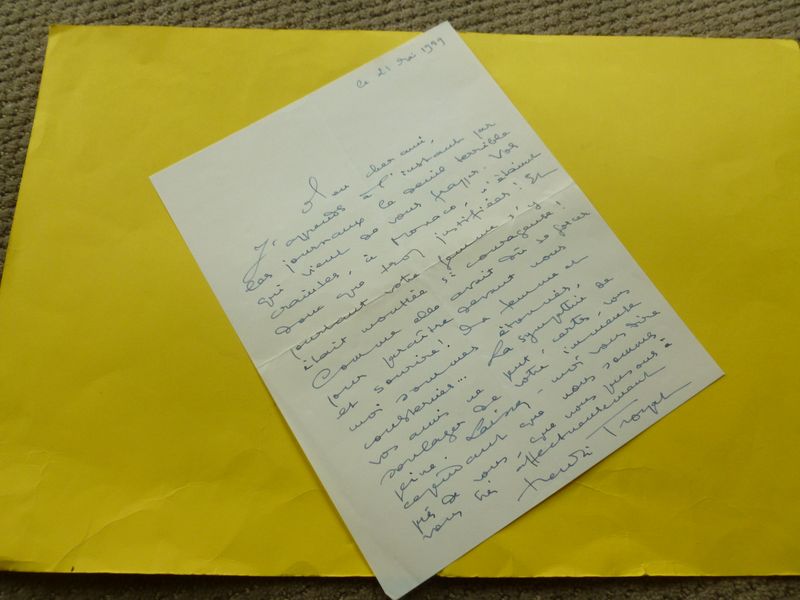 le 21 mai 1959
Mon cher ami,
J'apprends à l'instant par
les journaux le deuil terrible
qui vient de vous frapper. Vos
craintes, à Monaco, n'étaient
donc que trop justifiées ! Et
pourtant votre femme s'y
était montrée si courageuse !
Comme elle avait dû se forcer
pour paraître devant nous
et sourire ! Ma femme et
moi sommes étonnés,
consternés... La sympathie de
vos amis ne peut, certes, vous
soulager de votre immense
peine. Laissez-moi vous dire
cependant que nous sommes
près de vous, que nous pensons à
vous très affectueusement
Henri Troyat